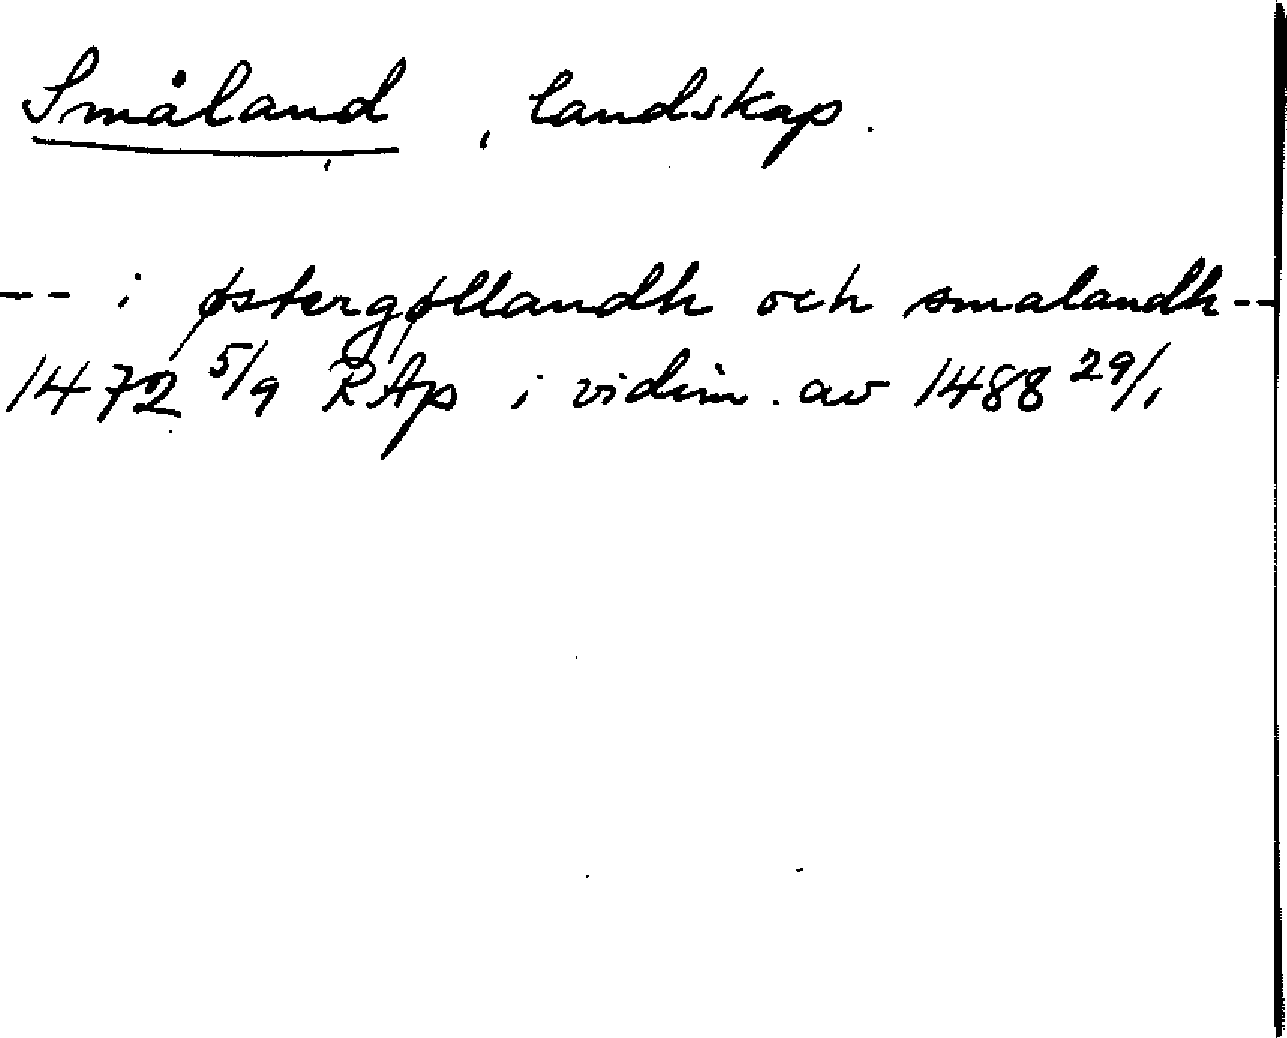 Småland, landskap.
-- i østergøtlandh och smalandh --
1472 5/9 RAp i vidim. av 1488 29/1